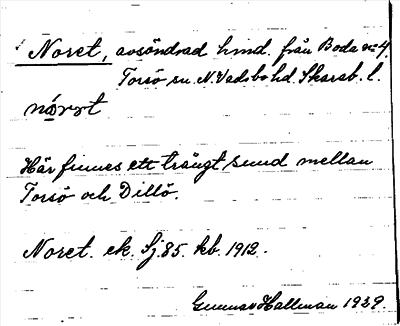 Noret, avsöndrad hmd. från Boda n:o 4
Torsö sn. N. Vadsbo hd. Skarab. l.
Här finnes ett trångt sund mellan
Torsö och Dillö.
Noret. ek. Sj. 85. kb. 1912.
Gunnar Hallman 1929